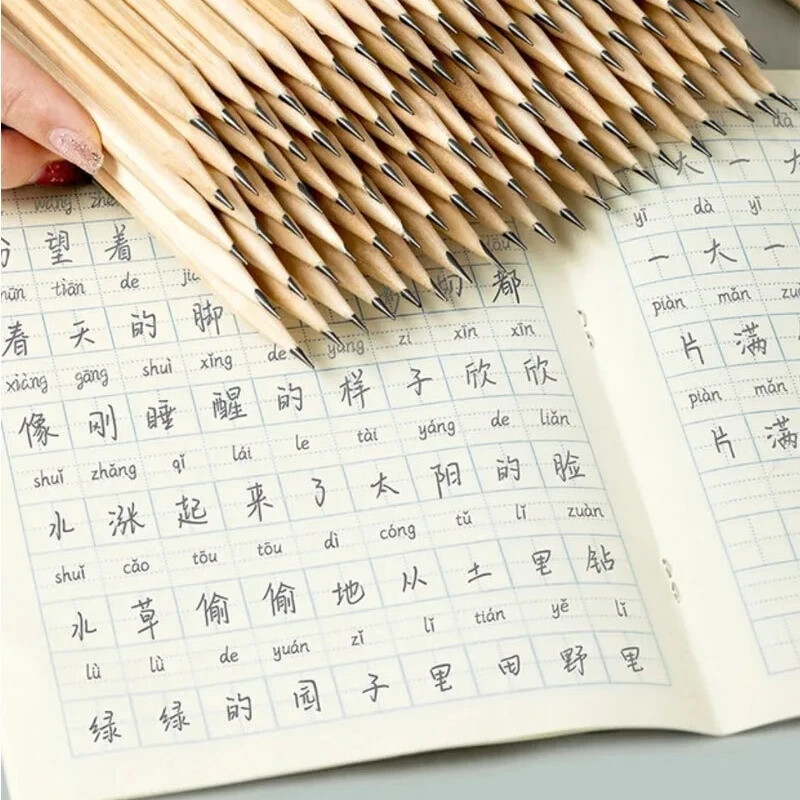 wàng zhe
望 着
tiān de
着 天 的 脚 切 都
xiàng gāng shuì xǐng de yàng zi xīn xīn
像 刚 睡 醒 的 样 子 欣 欣
shuǐ zhǎng qǐ lái le tài yáng de liǎn
水 涨 起 来 了 太 阳 的 脸
shuǐ cǎo tōu tōu dì cóng tǔ lǐ zuàn
水 草 偷 偷 地 从 土 里 钻
lǜ lǜ de yuán zǐ lǐ tián yě lǐ
绿 绿 的 园 子 里 田 野 里
dà
一 大 一 大
yī dà yī
一 大 一
piàn mǎn
片 满
piàn mǎn
片 满